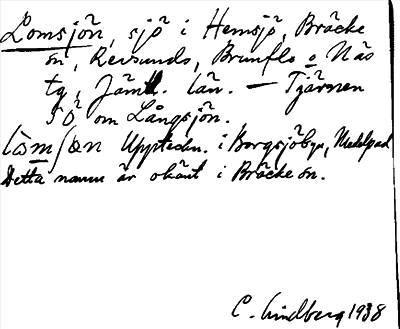 Lomsjön, sjö i Hemsjö, Bräcke
sn, Revsunds, Brunflo o Näs
tg, Jämtl. län. — Tjärnen
SÖ om Långsjön.
lòmʃøn Uppteckn. i Borgsjöbyn, Medelpad
Detta namn är okänt i Bräcke sn.
C. Lindberg 1938